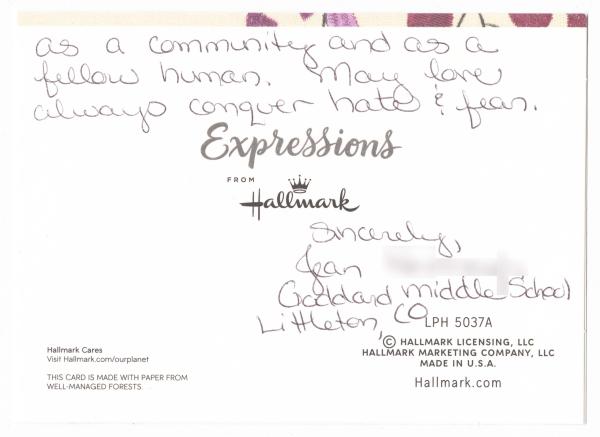 as a community and as a
fellow human. May love
always conquer hate & fear.
Expressions
FROM
Hallmark
Sincerely,
Jean
Goddard Middle School
Littleton, CO
LPH 5037A
© HALLMARK LICENSING, LLC
HALLMARK MARKETING COMPANY, LLC
MADE IN U.S.A.
Hallmark.com
Hallmark Cares
Visit Hallmark.com/ourplanet
THIS CARD IS MADE WITH PAPER FROM
WELL-MANAGED FORESTS.